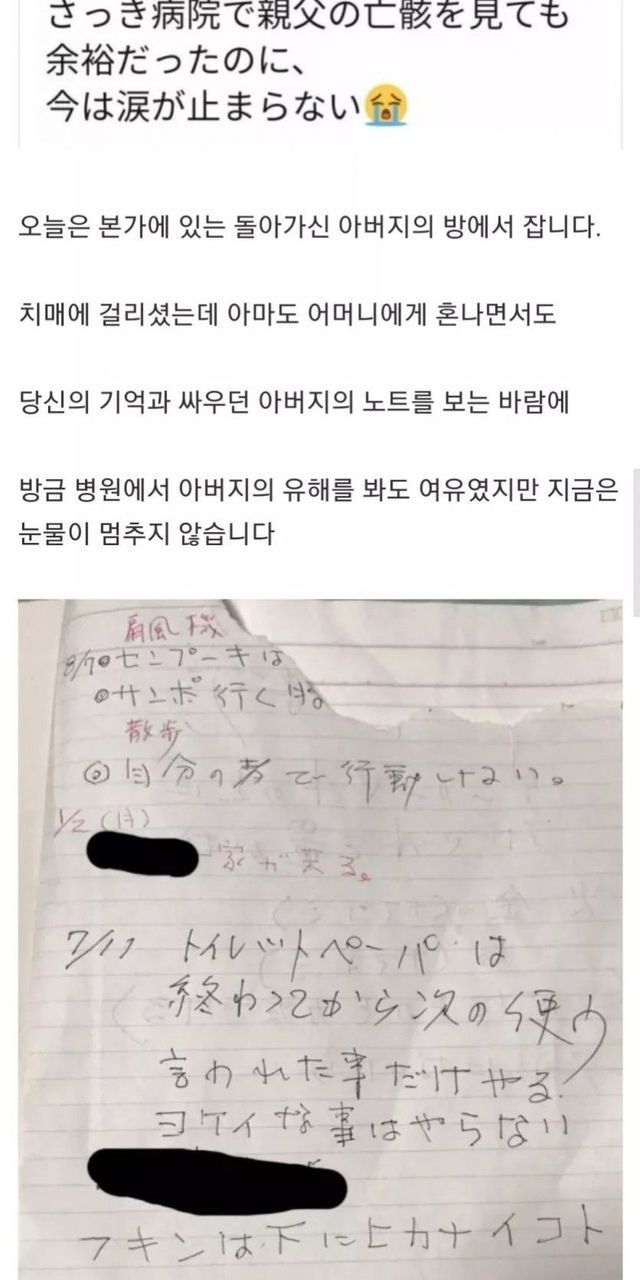 さっき病院で親父の亡骸を見ても
余裕だったのに、
今は涙が止まらない😭
오늘은 본가에 있는 돌아가신 아버지의 방에서 잡니다.
치매에 걸리셨는데 아마도 어머니에게 혼나면서도
당신의 기억과 싸우던 아버지의 노트를 보는 바람에
방금 병원에서 아버지의 유해를 봐도 여유였지만 지금은
눈물이 멈추지 않습니다
扇風機
8/7 センプーキは
◎サンポ行く時
散歩
◎自分の考で行動しない。
1/2(月)
家が来る。
7/11 トイレットペーパーは
終わってから次の使う
言われた事だけやる.
ヨケイな事はやらない
フキンは下にヒカナイコト